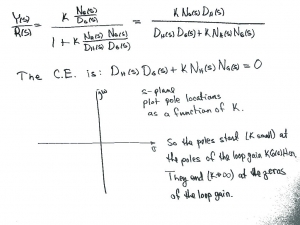 Y(s)/R(s) = K N_G(s)/D_G(s) / (1 + K N_G(s) N_H(s) / D_H(s) D_G(s)) = K N_G(s) D_H(s) / (D_H(s) D_G(s) + K N_H(s) N_G(s))
The C.E. is: D_H(s) D_G(s) + K N_H(s) N_G(s) = 0
jω
s-plane
plot pole locations
as a function of K.
σ
So the poles start (K small) at
the poles of the loop gain KG(s)H(s).
They end (K→∞) at the zeros
of the loop gain.